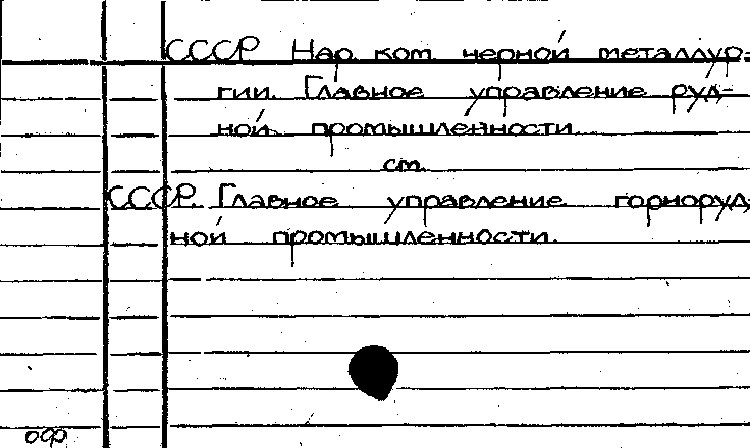 СССР Нар. ком. черной металлур-
гии. Главное управление руд-
ной промышленности
см.
СССР. Главное управление горноруд-
ной промышленности.
оф